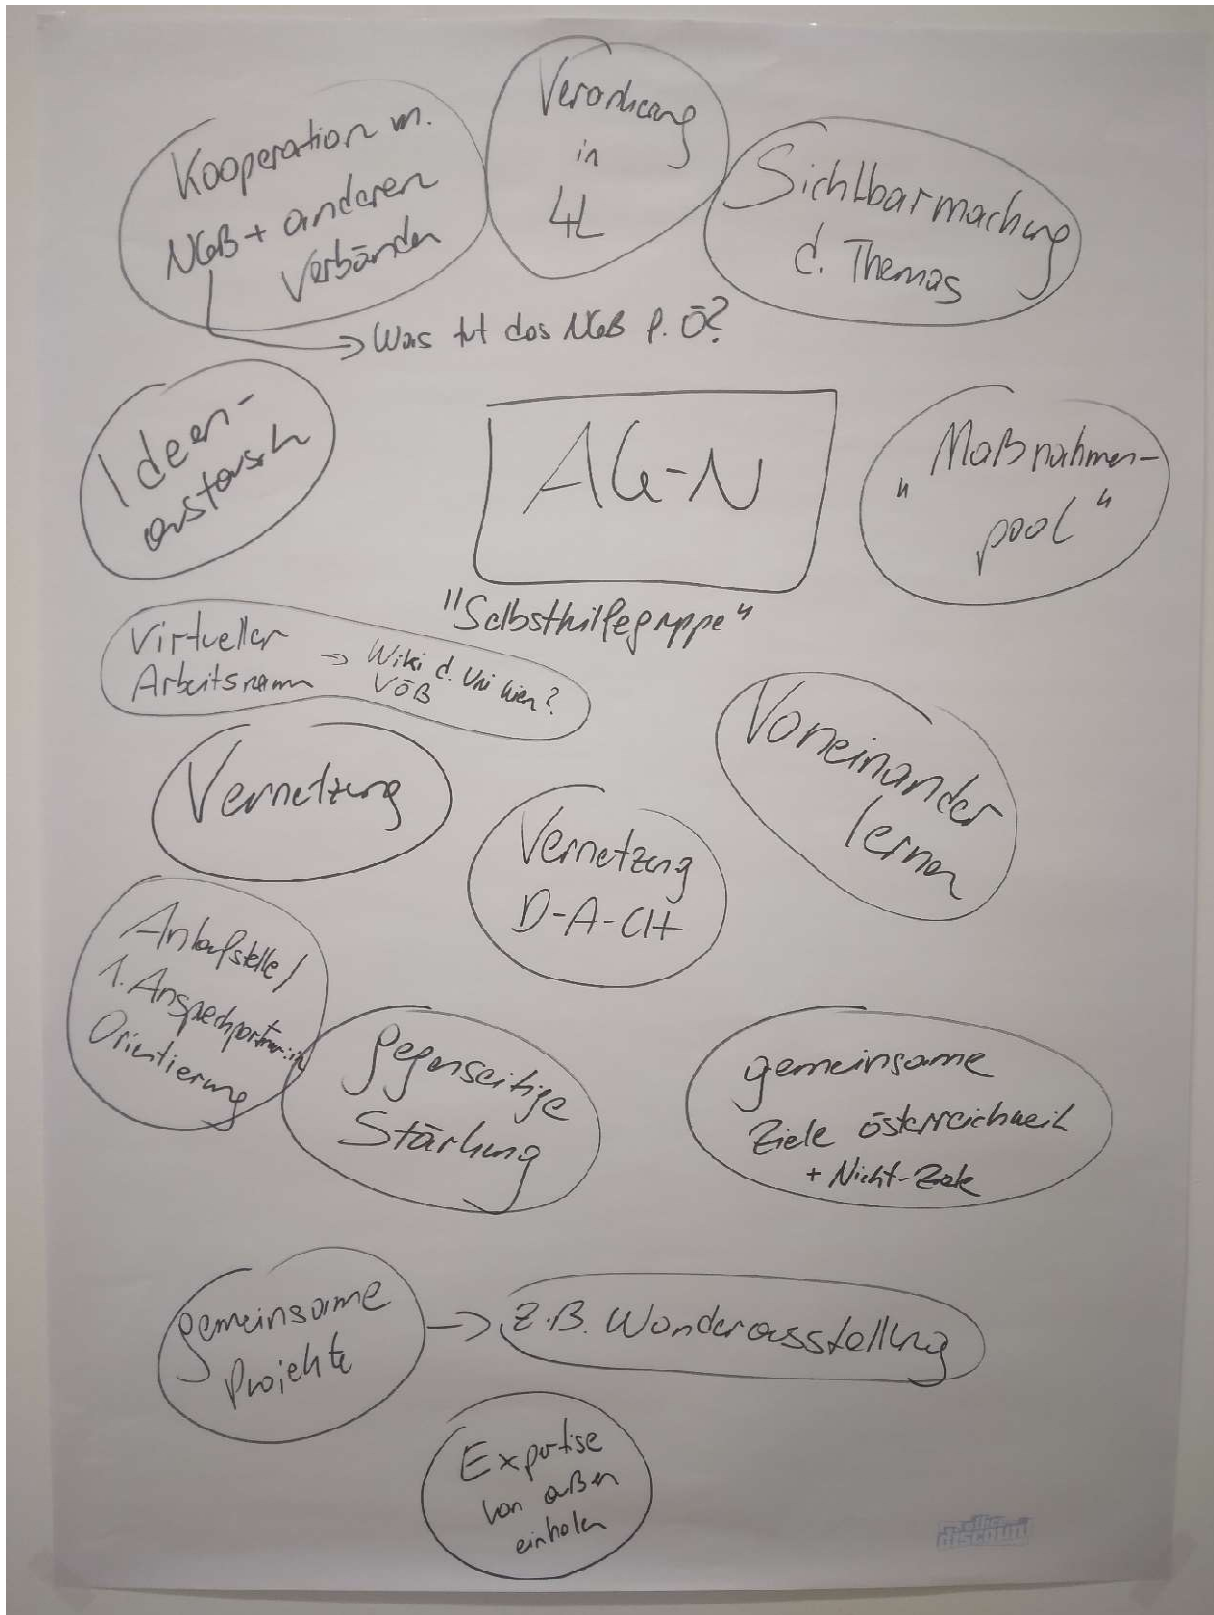 Kooperation m.
NGB + anderen
Verbänden
Verankerung
in
4L
Sichtbarmachung
d. Themas
→ Was tut das NGB f. Ö?
Ideen-
austausch
AG-N
"Selbsthilfegruppe"
"Maßnahmen-
pool"
Virtueller
Arbeitsraum
→ Wiki d. Uni Wien?
VÖB
Vernetzung
Voneinander
lernen
Vernetzung
D-A-CH
Anlaufstelle/
1. Ansprechpartner:in
Orientierung
gegenseitige
Stärkung
gemeinsame
Ziele österreichweit
+ Nicht-Ziele
gemeinsame
Projekte
→ z.B. Wanderausstellung
Expertise
von außen
einholen
discount